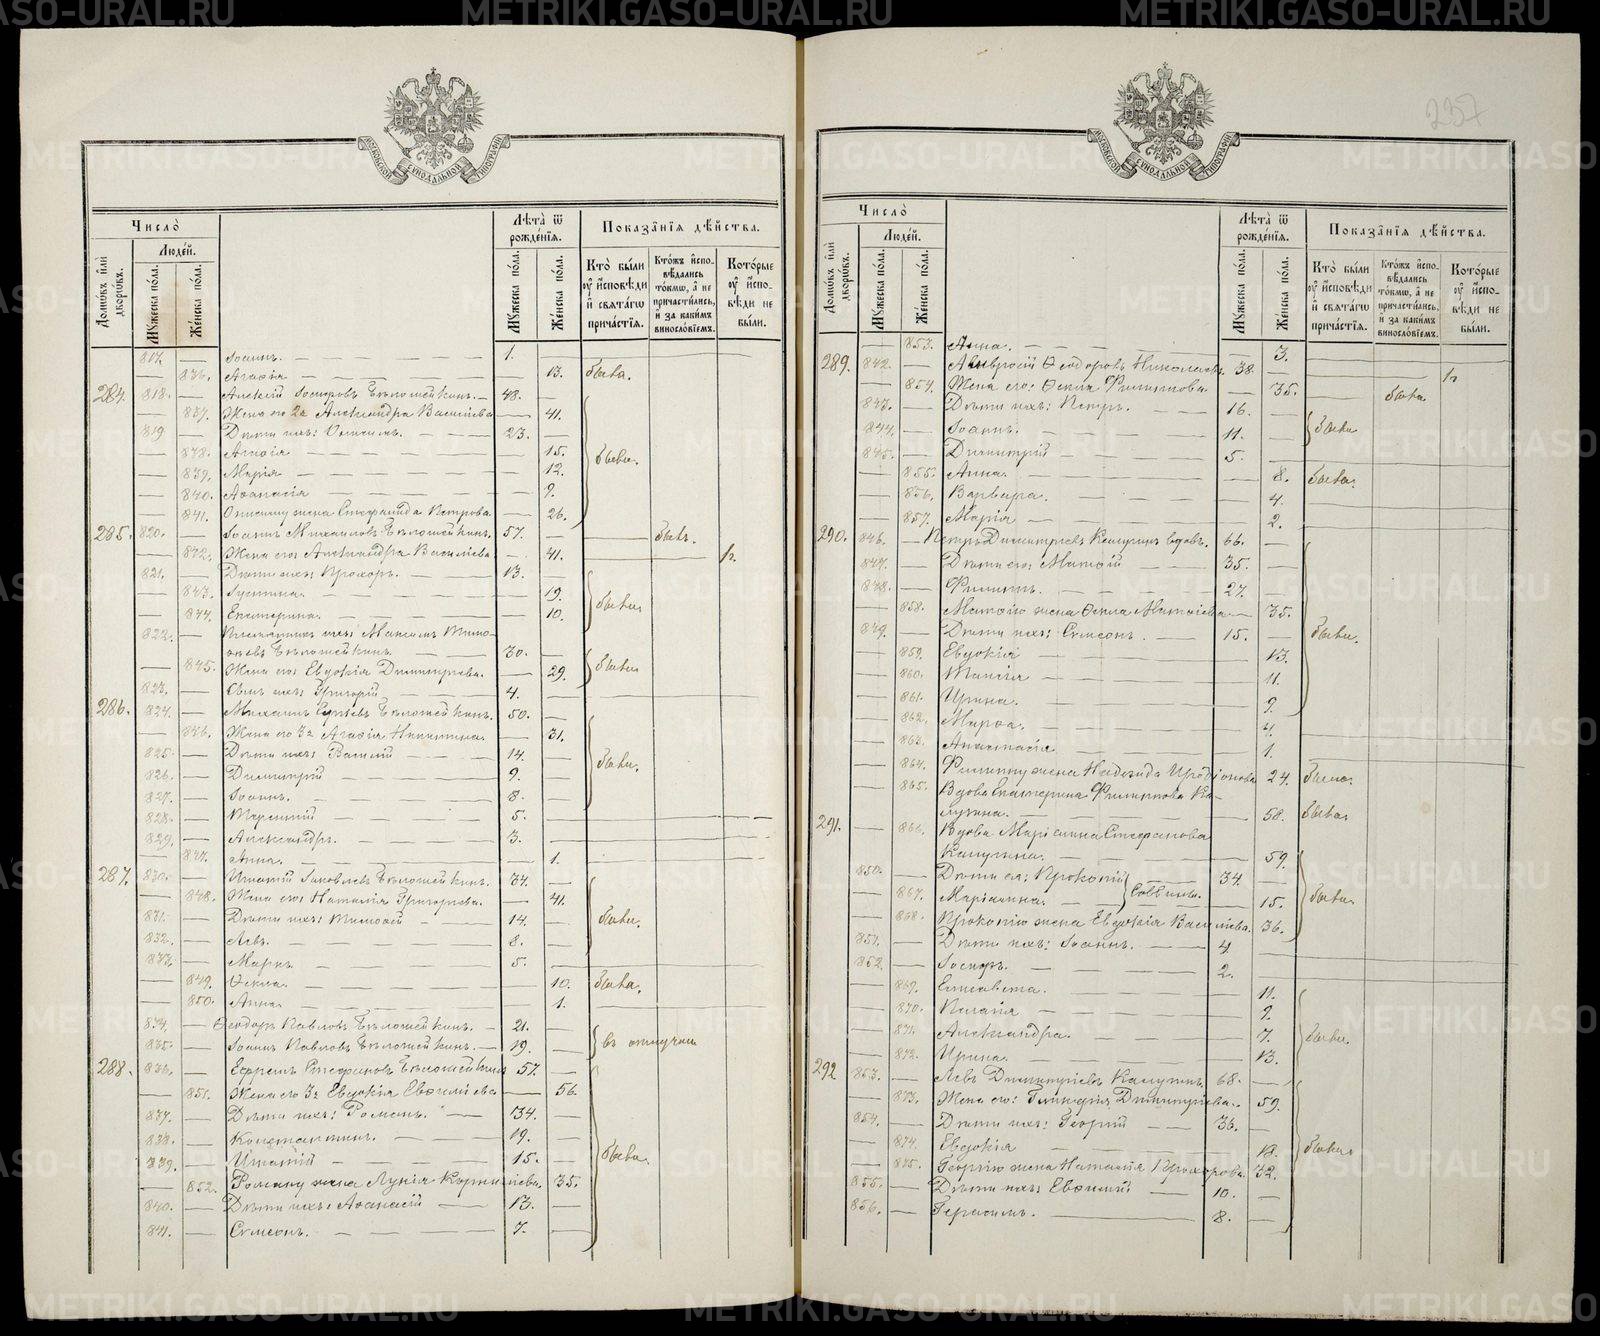 METRIKI.GASO-URAL.RU
237
МОСКОВСКОЙ СѴНОДАЛЬНОЙ ТИПОГРАФІИ
Число̀
Лѣта̀ ѿ рождѐнїѧ.
Показа̑нїѧ дѣ́йства.
Домѡ́въ и҆лѝ дворѡ́въ.
Люде́й.
Мꙋ́жеска по́ла.
Же́нска по́ла.
Мꙋ́жеска по́ла.
Же́нска по́ла.
Кто̀ бы́ли оу҆ и҆сповѣди и҆ свѧта́гѡ прича́стїѧ.
Кто́жъ и҆сповѣ́дались то́кмѡ, а҆ не причасти́лись, и҆ за каки́мъ винослѡвїемъ.
Кото́рые оу҆ и҆сповѣди не бы́ли.
817. — Іоаннъ. — 1.
— 836. Агафія — 13. была.
284. 818. — Алексій Іосифовъ Бѣлошейкинъ. — 48.
— 837. Жена его 2я Александра Васильева — 41.
819 — Дѣти ихъ: Онисимъ. — 23. —
— 838. Агафія — 15. были.
— 839. Марія — 12.
— 840. Аѳанасія — 9.
— 841. Онисиму жена Стефанида Петрова — 26.
285. 820. — Іоаннъ Михаиловъ Бѣлошейкинъ. 57. — былъ.
— 842. Жена его Александра Васильева — 41. — 1.
821. — Дѣти ихъ: Прохоръ. — 13. —
— 843. Іустина. — 19. были
— 844. Екатерина. — 10.
822. — Племянникъ ихъ: Максимъ Тимо-
ѳеевъ Бѣлошейкинъ. — 30. —
— 845. Жена его: Евдокія Димитріева. — 29. были
823. — Сынъ ихъ: Григорій — 4. —
286. 824. — Михаилъ Бѣлошейкинъ. 50. —
— 846. Жена его 3я Агафія Никитина. — 31.
825. — Дѣти ихъ: Василій — 14. —
826. — Димитрій — 9. — были.
827. — Іоаннъ. — 8. —
828. — Терентій — 5. —
829. — Александръ. — 3. —
— 847. Анна. — 1.
287. 830. — Игнатій Іаковлевъ Бѣлошейкинъ. 34. —
— 848. Жена его: Наталія Григорьева. — 41.
831. — Дѣти ихъ: Тимоѳей — 14. — были.
832. — Левъ. — 8. —
833. — Маркъ. — 5. —
— 849. Ѳекла. — 10. была.
— 850. Анна. — 1.
834. — Ѳеодоръ Павловъ Бѣлошейкинъ. — 21. —
835. — Іоаннъ Павловъ Бѣлошейкинъ. — 19. — въ отлучкѣ
288. 836. — Ефремъ Стефановъ Бѣлошейкинъ 57. —
— 851. Жена его 3я Евдокія Евѳиміева — 56.
837. — Дѣти ихъ: Романъ. — 34. —
838. — Константинъ. — 19. —
839. — Игнатій — 15. — были.
— 852. Роману жена Лукія Корнильева. — 35.
840. — Дѣти ихъ: Аѳанасій — 13. —
841. — Симеонъ. — 7. —
Число̀
Лѣта̀ ѿ рождѐнїѧ.
Показа̑нїѧ дѣ́йства.
Домѡ́въ и҆лѝ дворѡ́въ.
Люде́й.
Мꙋ́жеска по́ла.
Же́нска по́ла.
Мꙋ́жеска по́ла.
Же́нска по́ла.
Кто̀ бы́ли оу҆ и҆сповѣди и҆ свѧта́гѡ прича́стїѧ.
Кто́жъ и҆сповѣ́дались то́кмѡ, а҆ не причасти́лись, и҆ за каки́мъ винослѡвїемъ.
Кото́рые оу҆ и҆сповѣди не бы́ли.
— 853. Анна. — 3.
289. 842. — Амвросій Ѳеодоровъ 38. — 1.
— 854. Жена его: Ѳекла Филиппова — 35. была
843. — Дѣти ихъ: Петръ. — 16. —
844. — Іоаннъ. — 11. — были
845. — Димитрій — 5. —
— 855. Анна. — 8. была.
— 856. Варвара. — 4.
— 857. Марія — 2.
290. 846. — Петръ Димитріевъ Калугинъ вдовъ. 66. —
847. — Дѣти его: Матѳій — 35. —
848. — Филиппъ. — 27. —
— 858. Матѳію жена Ѳекла Матѳіева — 35.
849. — Дѣти ихъ: Симеонъ. — 15. — были.
— 859. Евдокія — 13.
— 860. Таисія — 11.
— 861. Ирина. — 9.
— 862. Марѳа. — 4.
— 863. Анастасія — 1.
— 864. Филиппу жена Надежда Иродіонова 24. была.
— 865. Вдова Екатерина Филиппова Ка-
лугина. — 58. была.
291. — 866. Вдова Маріамна Стефанова
Калугина. — 59.
850. — Дѣти ея: Прокопій 34. —
— 867. Маріамна. — 15. были
— 868. Прокопію жена Евдокія Васильева. 36.
851. — Дѣти ихъ: Іоаннъ. — 4 —
852. — Іосифъ. — 2. —
— 869. Елисавета. — 11.
— 870. Пелагія — 9.
— 871. Александра. — 7. были.
— 872. Ирина. — 13.
292 853. — Левъ Димитріевъ Калугинъ. 68. —
— 873. Жена его: Гликерія Димитріева. — 59.
854. — Дѣти ихъ: Георгій — 36. —
— 874. Евдокія — 18. были
— 875. Георгію жена Наталія Прохорова. 32.
855. — Дѣти ихъ: Евѳимій — 10. —
856. — Герасимъ. — 8. —